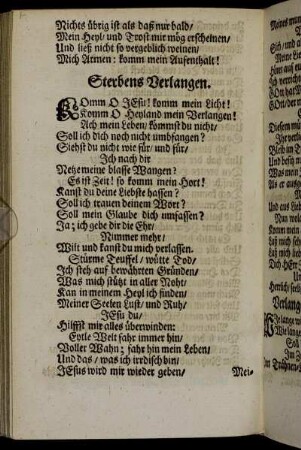 Nichts übrig ist als daß nur bald/
Mein Heyl und Trost mir mög erscheinen/
Und ließ nicht so vergeblich weinen/
Mich Armen: komm mein Aufenthalt!
Sterbens Verlangen.
KOmm O JEsu! komm mein Licht!
Komm O Heyland mein Verlangen!
Ach mein Leben/ kommst du nicht/
Soll ich dich noch nicht umbfangen?
Siehst du nicht wie für/ und für/
Ich nach dir
Netze meine blasse Wangen?
Es ist Zeit! so komm mein Hort!
Kanst du deine Liebste hassen?
Soll ich trauen deinem Wort?
Soll mein Glaube dich umfassen?
Ja; ich gebe dir die Ehr/
Nimmer mehr/
Wilt und kanst du mich verlassen.
Stürme Teuffel/ wütte Tod/
Ich steh auf bewährten Gründen/
Was mich stützt in aller Noht/
Kan in meinem Heyl ich finden/
Meiner Seelen Lust/ und Ruh/
JEsu du/
Hilffst mir alles überwinden:
Eytle Welt fahr immer hin/
Voller Wahn; fahr hin mein Leben/
Und das/ was ich irrdisch bin/
JEsus wird mir wieder geben/
Mei-